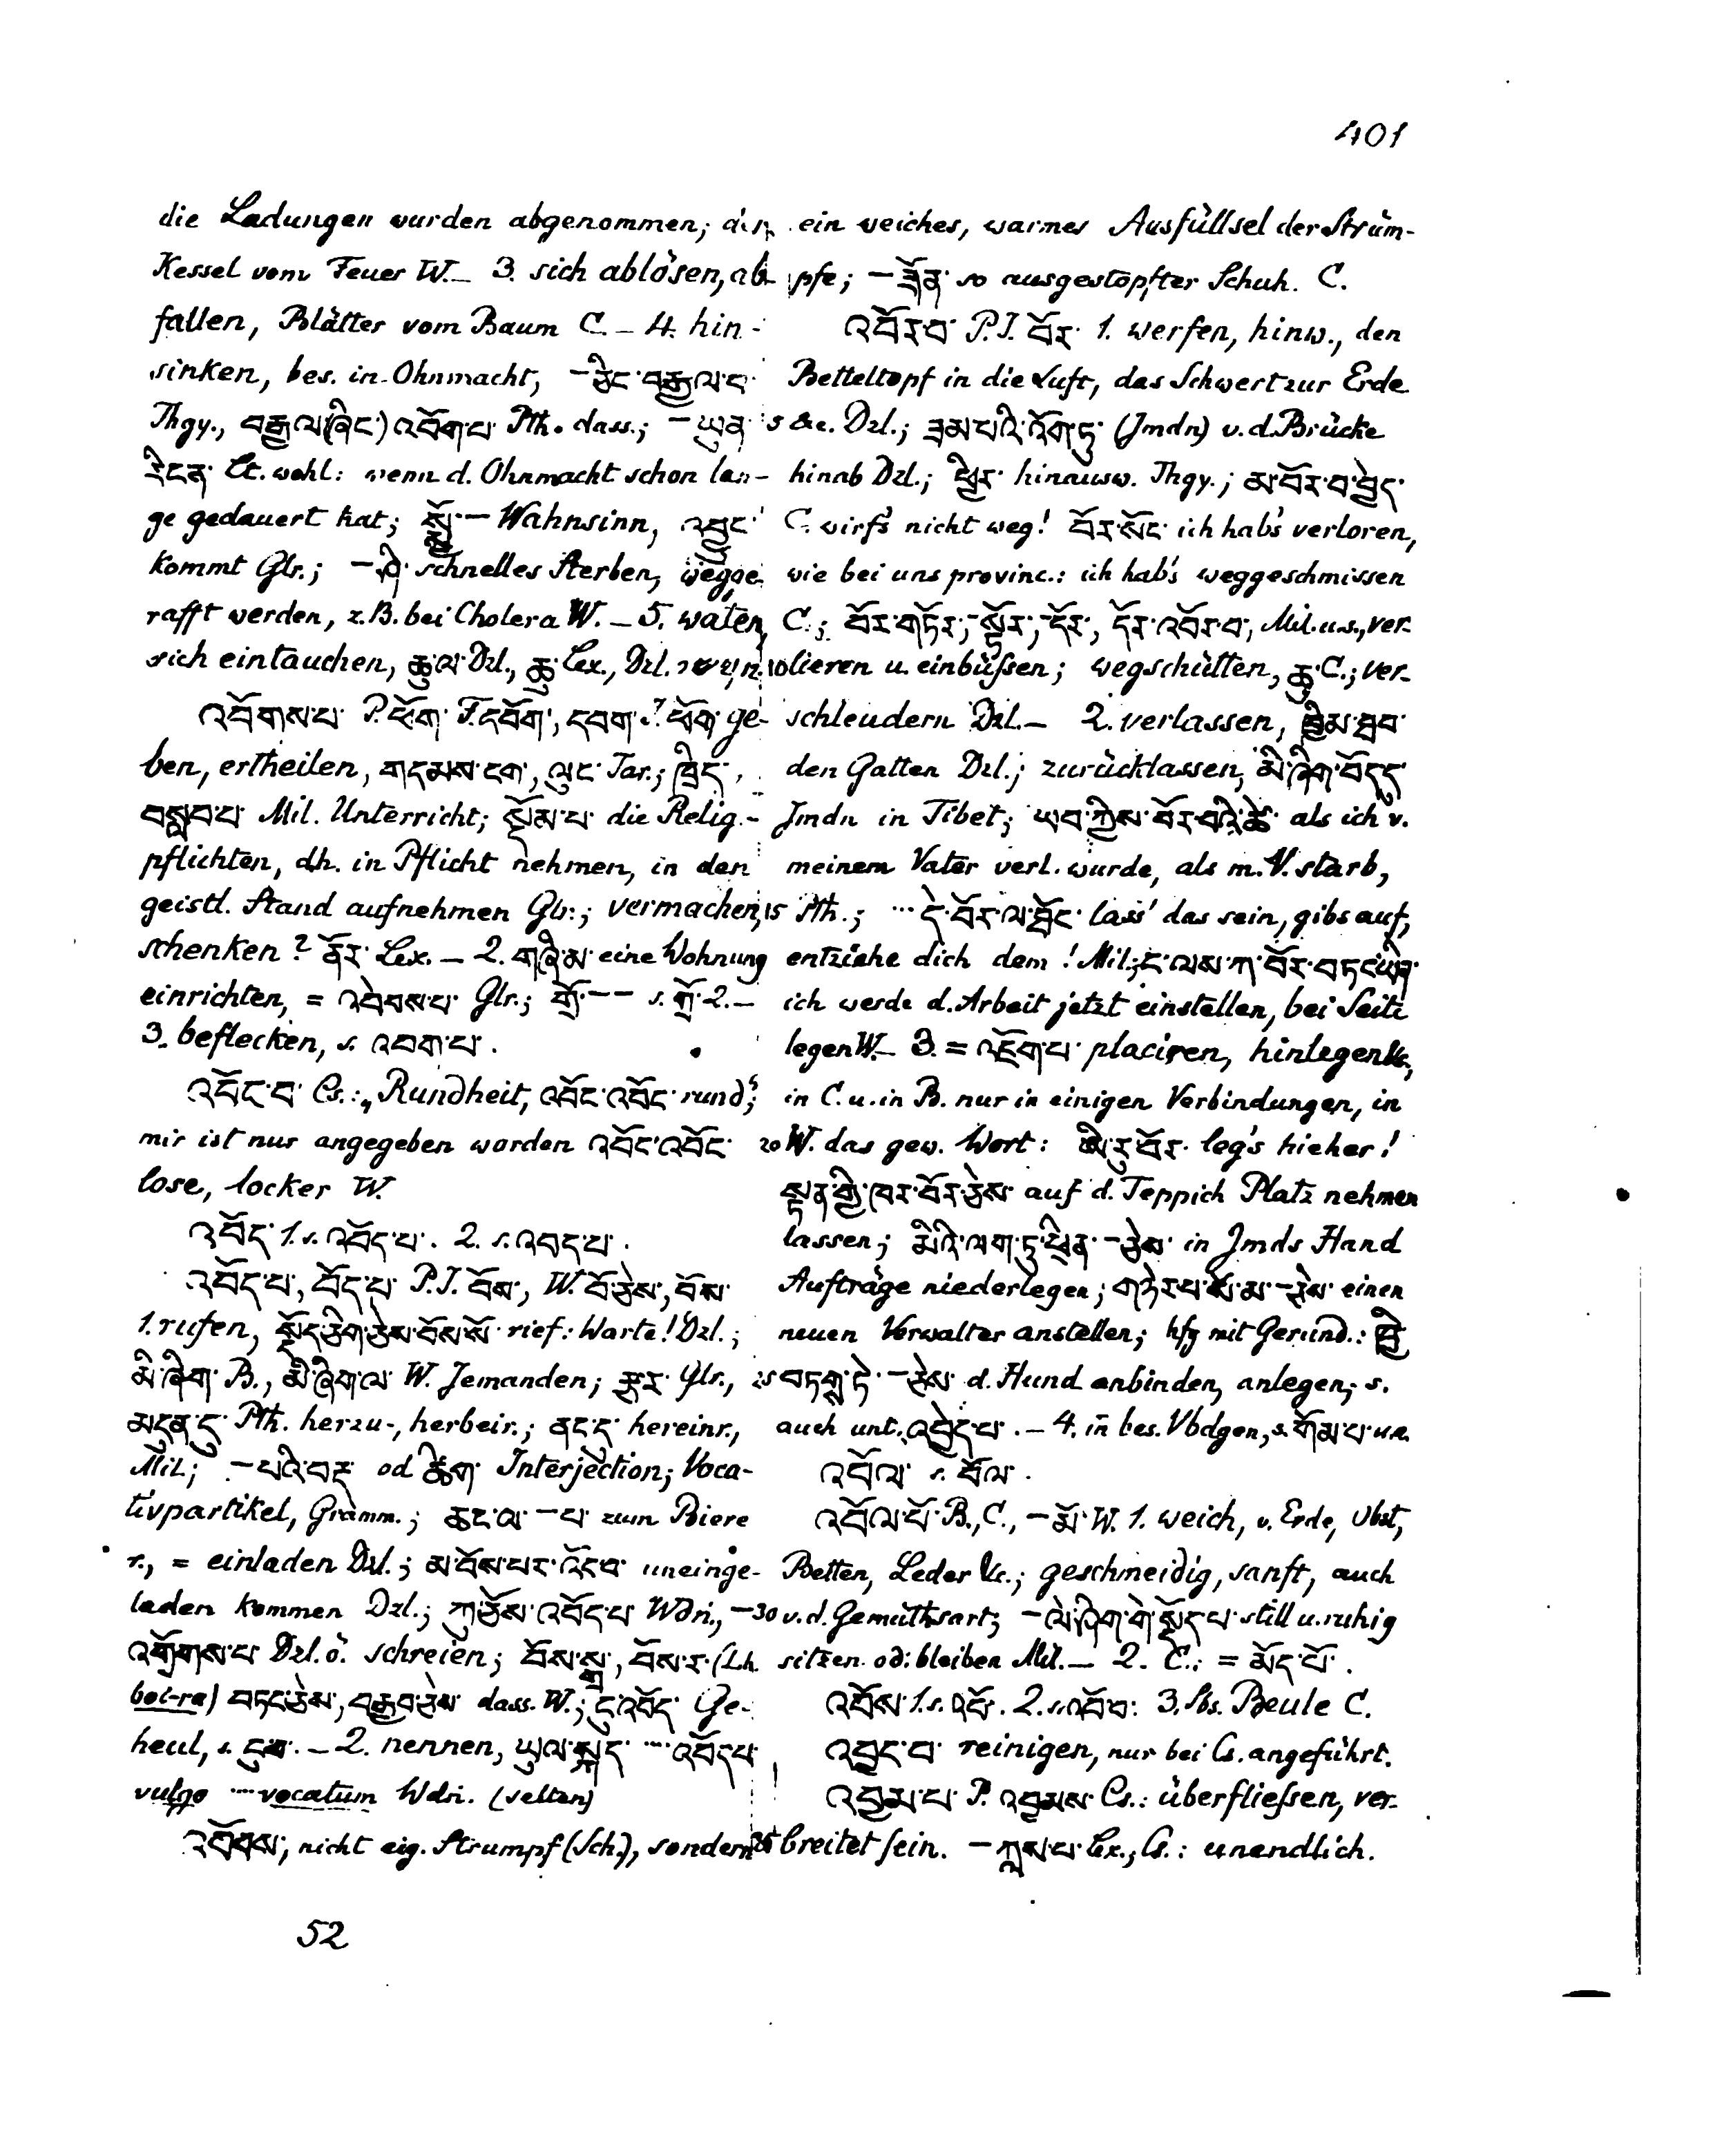 401
die Ladungen wurden abgenommen; der
Kessel vom Feuer W. _ 3. sich ablösen, ab-
fallen, Blätter vom Baum C. _ 4. hin-
sinken, bes. in Ohnmacht, – སྙིང་བརྒྱལ་ང་
Thgy., བརྒྱལ་(ཞིང་) འབོག་པ་ Pth. dass.; – ཡུན་
རིངན་ Lt. wohl: wenn d. Ohnmacht schon lan-
ge gedauert hat; སྨྱོ་ – Wahnsinn, འབྱུང་
kommt Glr.; – ཤི་ schnelles Sterben, wegge-
rafft werden, z.B. bei Cholera W. _ 5. waten,
sich eintauchen, ཆུ་ལ་ Dzl., ཆུ་ Lex., Dzl.
འབོགས་པ་ P. ཕོག་ F. དབོག་, དབག་ J. ཕོག་ ge-
ben, ertheilen, གདམས་ངག་, ལུང་ Tar.; ཁྲིད་,
བསླབ་པ་ Mil. Unterricht; སྡོམ་པ་ die Relig.-
pflichten, dh. in Pflicht nehmen, in den
geistl. Stand aufnehmen Glr.; vermachen,
schenken? ནོར་ Lex. _ 2. གཞི་མ་ eine Wohnung
einrichten, = འབེབས་པ་ Glr.; གྲོ་ – – s. གྲོ་ 2. _
3. beflecken, s. འབག་པ་.
འབོང་བ་ Cs.: „Rundheit, འབོང་འབོང་ rund“;
mir ist nur angegeben worden འབོང་འབོང་
lose, locker W.
འབོད་ 1. s. འབོད་པ་. 2. s. འབད་པ་.
འབོད་པ་, བོད་པ་ P.I. བོས་, W. བོ་ཅེས་, བོས་
1. rufen, སྡོད་ཅིག་ཅེས་བོས་སོ་ rief: Warte! Dzl.;
མི་ཞིག་ B., མི་ཞིག་ལ་ W. Jemanden; ཚུར་ Glr.,
མདུན་དུ་ Pth. herzu-, herbeir.; ནང་དུ་ hereinr.,
Mil.; – པའི་བརྡ་ od ཚིག་ Interjection; Voca-
tivpartikel, Gramm.; ཆང་ལ་ – པ་ zum Biere
r., = einladen Dzl.; མ་བོས་པར་འོང་བ་ uneinge-
laden kommen Dzl.; ཀུ་ཅོས་འབོད་པ་ Wdn., –
འགྲོགས་པ་ Dzl. ö. schreien; བོས་སྒྲ་, བོས་ར་ (Lh.
boi-ra) བཏང་ཅེས་, བརྒྱབ་ཅེས་ dass. W.; ངུ་འབོད་ Ge-
heul, s. ངུ་བ་. _ 2. nennen, ཡུལ་སྐད་ … འབོད་པ་
vulgo … vocatum Wdn. (selten)
འབོབས་, nicht eig. Strumpf (Sch.), sondern
52
ein weiches, warmes Ausfüllsel der Strüm-
pfe; – ཟོན་ so ausgestopfter Schuh. C.
འབོར་བ་ P.I. བོར་ 1. werfen, hinw., den
Betteltopf in die Luft, das Schwert zur Erde
5 &c. Dzl.; ཟམ་པའི་འོག་ཏུ་ (Jmdn) v. d. Brücke
hinab Dzl.; ཕྱིར་ hinausw. Thgy.; མ་བོར་བ་བྱེད་
C. wirf's nicht weg! བོར་སོང་ ich hab's verloren,
wie bei uns provinc.: ich hab's weggeschmissen
C.; བོར་གཏོར་, – སྟོར་, – དོར་, དོར་འབོར་བ་, Mil. u.s., ver-
10 lieren u. einbüßen; wegschütten, ཆུ་ C.; ver-
schleudern Dzl. _ 2. verlassen, ཁྱིམ་ཐབ་
den Gatten Dzl.; zurücklassen, མི་ཞིག་བོད་དུ་
Jmdn in Tibet; ཡབ་ཀྱིས་བོར་བའི་ཚེ་ als ich v.
meinem Vater verl. wurde, als m. V. starb,
15 Pth.; … དེ་བོར་ལ་ཐོང་ lass' das sein, gibs auf,
entziehe dich dem! Mil.; ང་ལས་ཀ་བོར་བཏང་ཡིན་
ich werde d. Arbeit jetzt einstellen, bei Seite
legen W. _ 3. = འཇོག་པ་ placiren, hinlegen &c.,
in C. u. in B. nur in einigen Verbindungen, in
20 W. das gew. Wort: ཨི་རུ་བོར་ leg's hieher!
སྟན་གྱི་ཁར་བོར་ཅེས་ auf d. Teppich Platz nehmen
lassen; མིའི་ལག་ཏུ་ཕྲིན་ – ཅེས་ in Jmds Hand
Aufträge niederlegen; གཉེར་པ་སོ་མ་ – ཅེས་ einen
neuen Verwalter anstellen; hfg mit Gerund.: ཁྱི་
25 བཏགས་ཏེ་ – ཅེས་ d. Hund anbinden, anlegen; s.
auch unt. འབྱེད་པ་. _ 4. in bes. Vbdgen, s. གོམ་པ་ ua.
འབོལ་ s. བོལ་.
འབོལ་པོ་ B., C., – མོ་ W. 1. weich, v. Erde, Obst,
Betten, Leder &c.; geschmeidig, sanft, auch
30 v. d. Gemüthsart; – ལེ་ཞིག་གེ་སྡོད་པ་ still u. ruhig
sitzen od: bleiben Mil. _ 2. C.: = མོད་པོ་.
འབོས་ 1. s. འབོ་. 2. s. འབོ་བ་: 3. Sbs. Beule C.
འབྱང་བ་ reinigen, nur bei Cs. angeführt.
འབྱམ་པ་ P. འབྱམས་ Cs.: überfließen, ver-
35 breitet sein. – ཀླས་པ་ Lex., Cs.: unendlich.